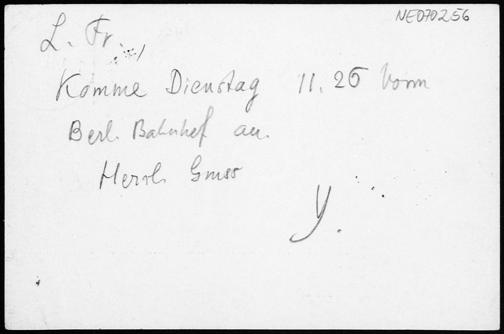 NE070256
L. Fr.
Komme Dienstag 11.25 Vorm
Berl. Bahnhof an.
Herzl. Gruss
Y.